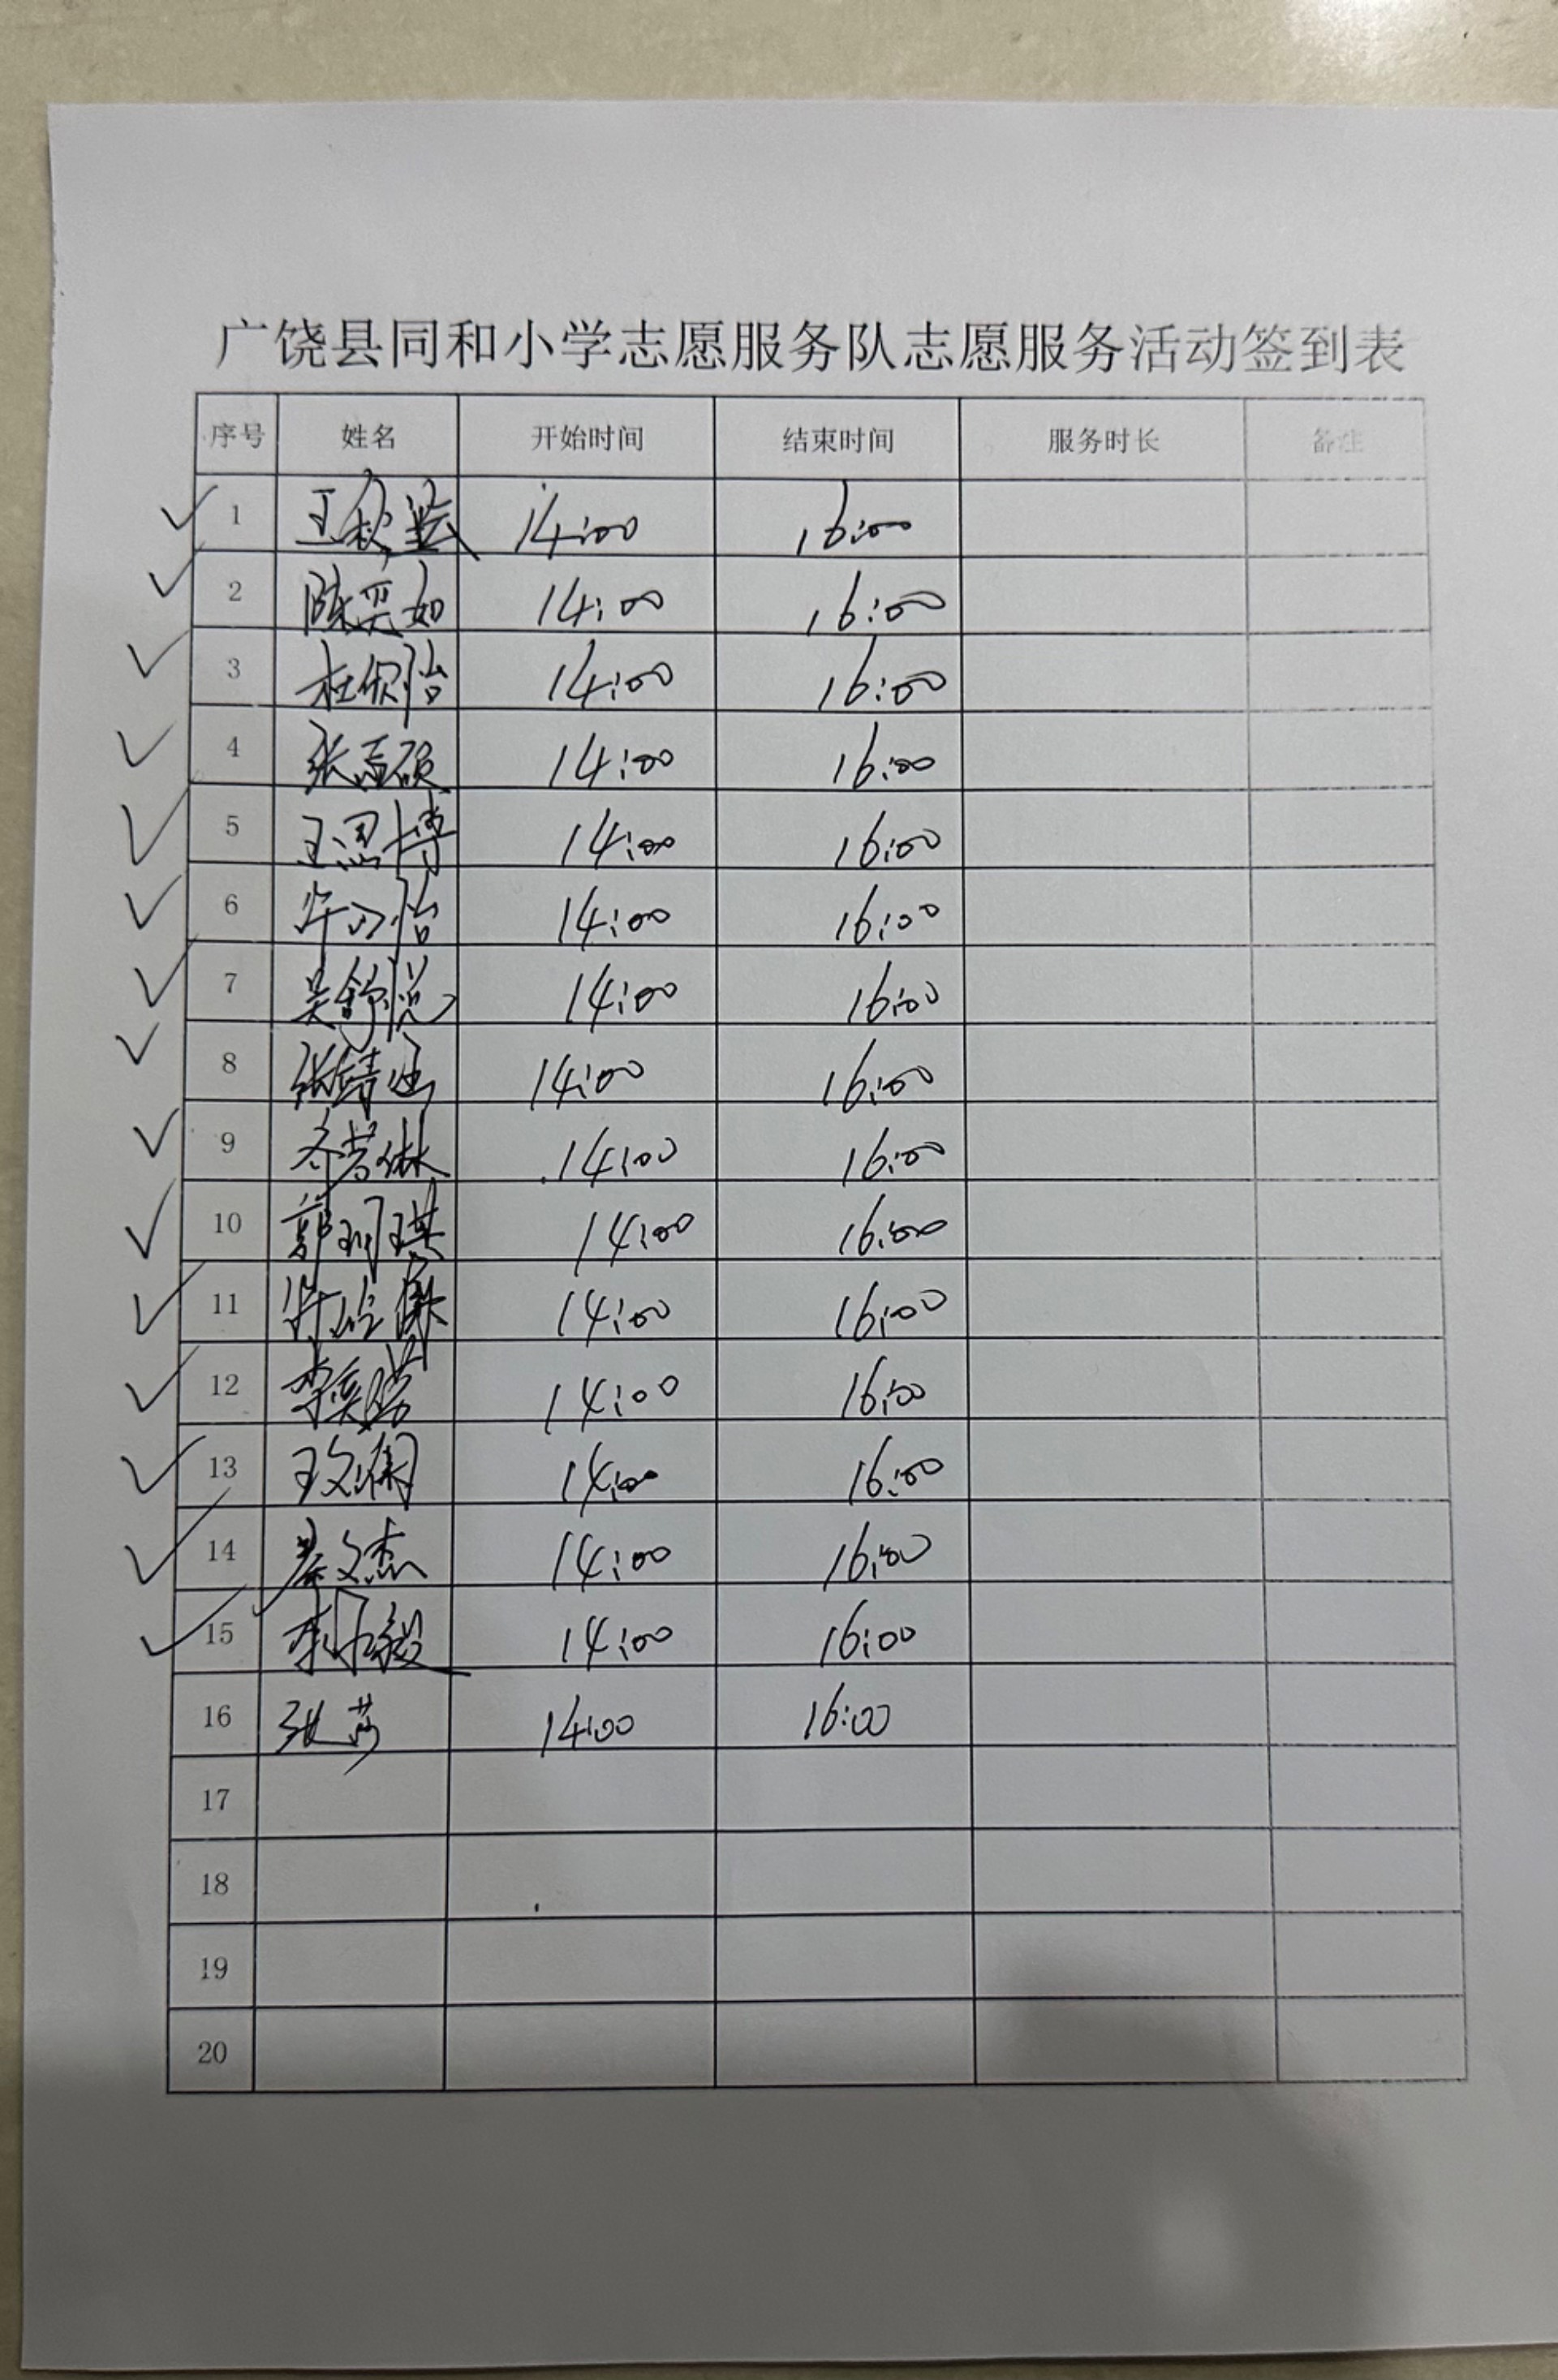 广饶县同和小学志愿服务队志愿服务活动签到表
序号 姓名 开始时间 结束时间 服务时长 备注
1 王 14:00 16:00
2 陈奕如 14:00 16:00
3 杜欣怡 14:00 16:00
4 张嘉硕 14:00 16:00
5 王思博 14:00 16:00
6 怡 14:00 16:00
7 吴舒悦 14:00 16:00
8 张婧涵 14:00 16:00
9 14:00 16:00
10 郭 琪 14:00 16:00
11 许 14:00 16:00
12 李奕 14:00 16:00
13 王文 14:00 16:00
14 文杰 14:00 16:00
15 李 14:00 16:00
16 张莎 14:00 16:00
17
18
19
20